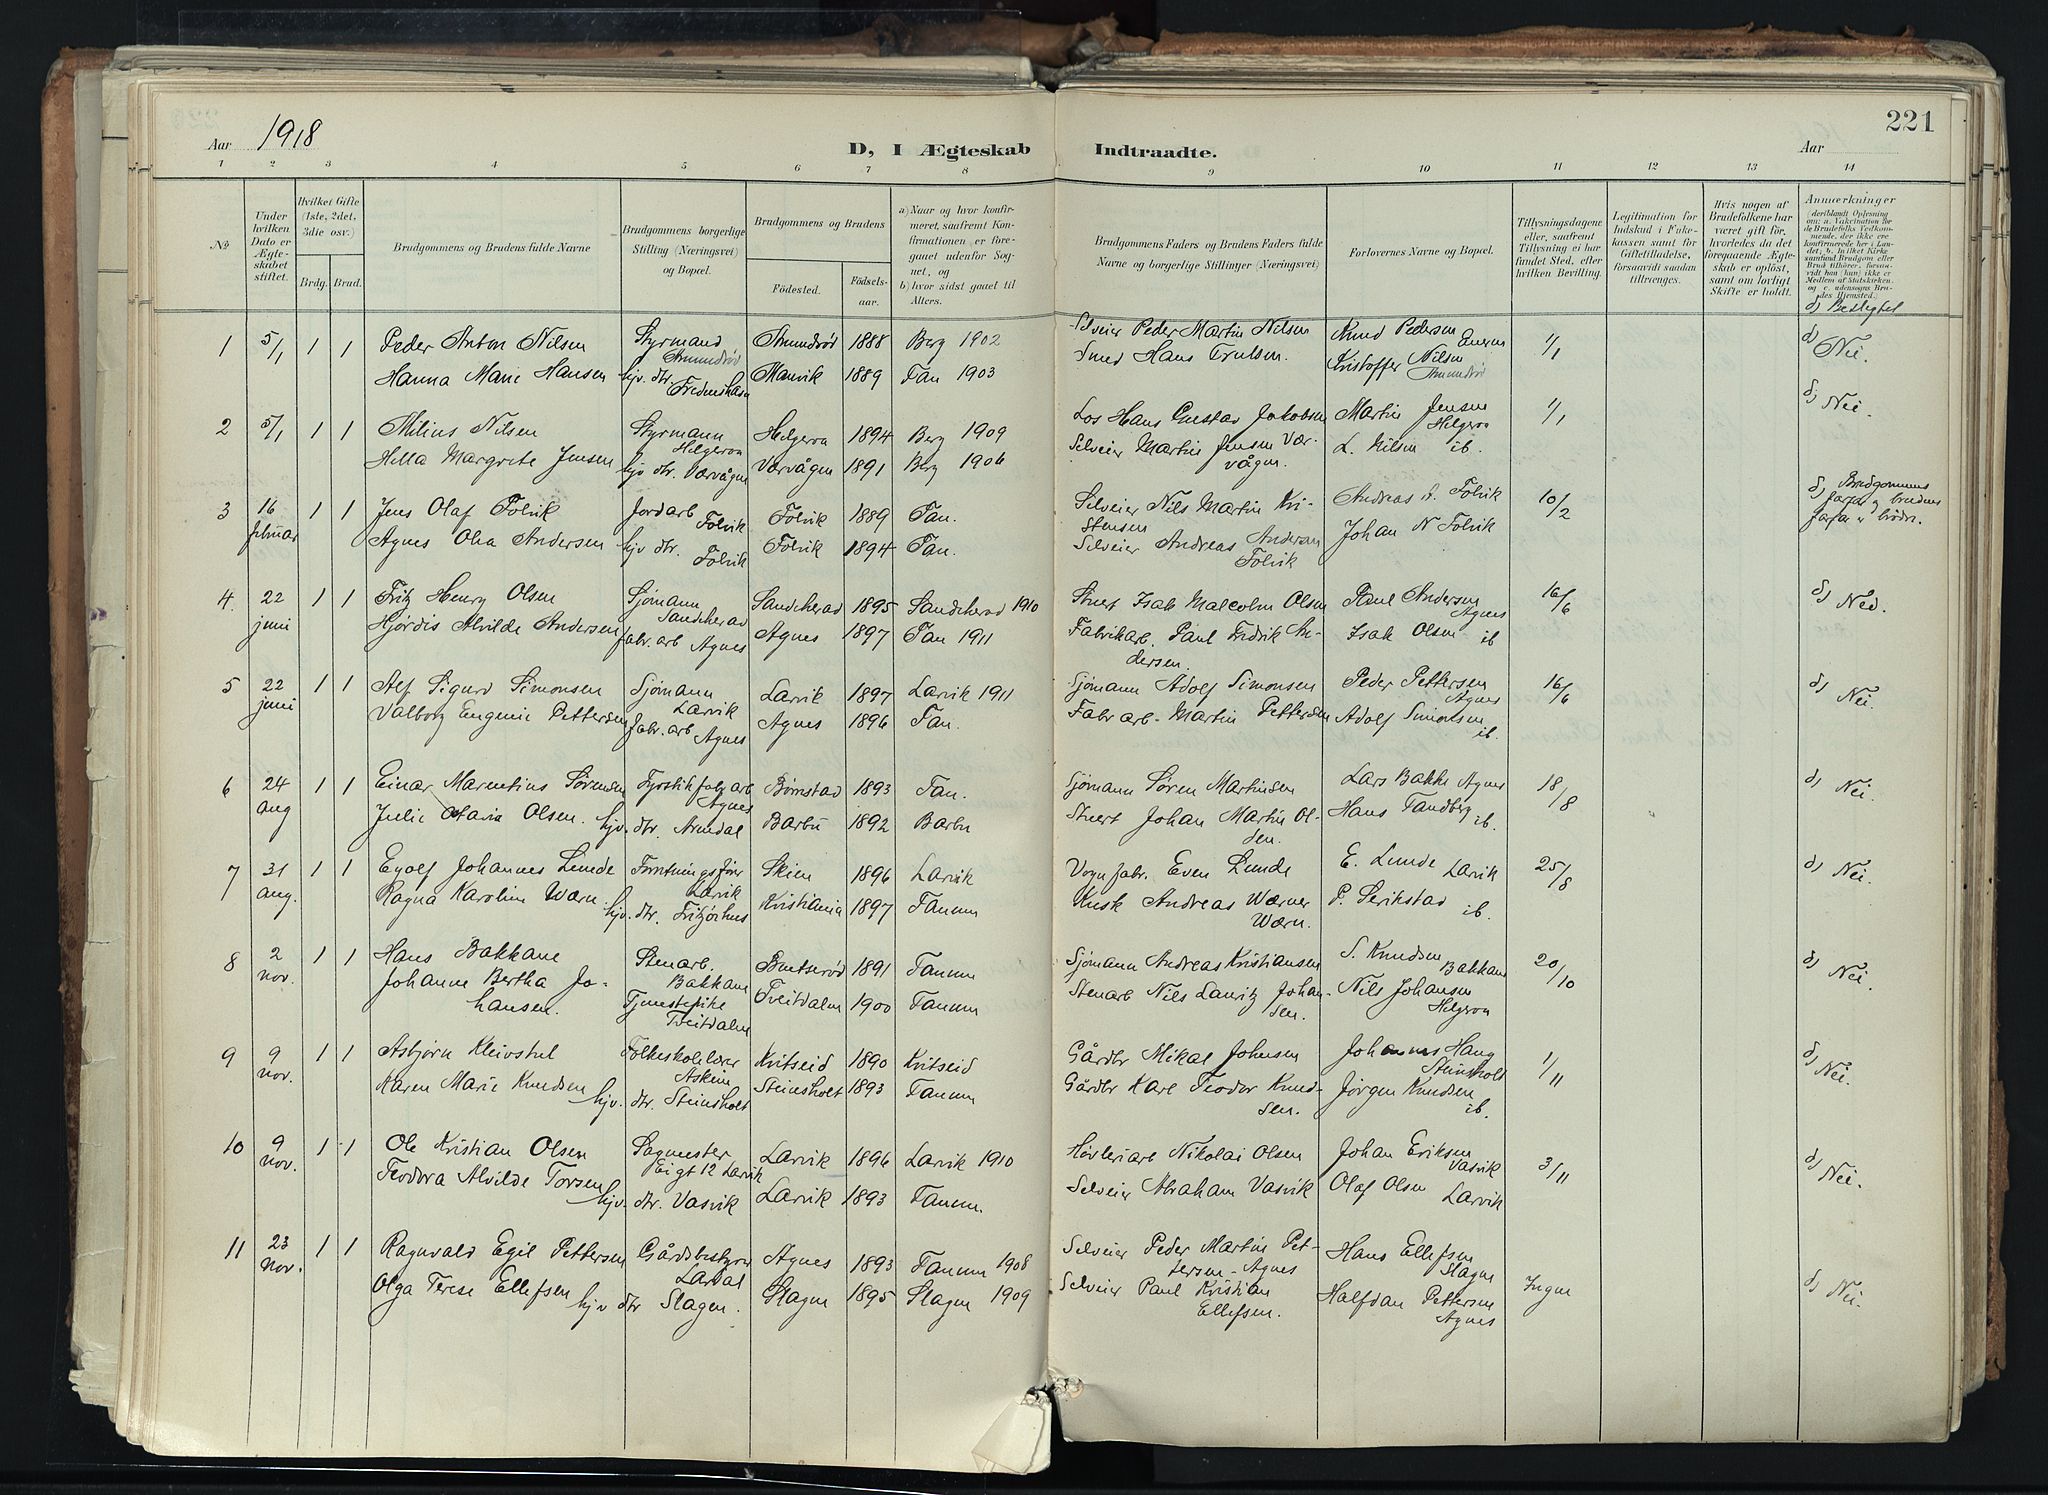 Aar 1918
D, I Ægteskab Indtraadte.
Aar
221
1 2 3 4 5 6 7 8 9 10 11 12 13 14
No
Under hvilken Dato er Ægteskabet stiftet.
Hvilket Gifte (1ste, 2det, 3die osv.)
Brdg. Brud.
Brudgommens og Brudens fulde Navne
Brudgommens borgerlige Stilling (Næringsvei) og Bopæl.
Brudgommens og Brudens
Fødested.
Fødselsaar.
a) Naar og hvor konfirmeret, saafremt Konfirmationen er foregaaet udenfor Sognet, og
b) hvor sidst gaaet til Alters.
Brudgommens Faders og Brudens Faders fulde Navne og borgerlige Stillinger (Næringsvei)
Forlovernes Navne og Bopæl.
Tillysningsdagene eller, saafremt Tillysning ei har fundet Sted, efter hvilken Bevilling.
Legitimation for Indskud i Enkekassen samt for Giftetilladelse, forsaavidt saadan tiltrænges.
Hvis nogen af Brudefolkene har været gift før, hvorledes da det foregaaende Ægteskab er opløst, samt om lovligt Skifte er holdt.
Anmærkninger (deriblandt Oplysning om: a. Vakcination for de Brudefolks Vedkommende, der ikke ere konfirmerede her i Landet; b. hvilket Kirkesamfund Brudgom eller Brud tilhører, forsaavidt han (hun) ikke er Medlem af Statskirken, og c. udensogns Brudes Hjemsted.
d) Beslegtet
1 5/1 1 1 Peder Anton Nilsen Styrmand Amundrød Amundrød 1888 Berg 1902 Selveier Peder Martin Nilsen Knud Pedersen 1/1 d) Nei.
Hanna Marie Hansen hjv. dtr. Manvik 1889 Tan 1903 Smed Hans Trulsen. Kristoffer Nilsen Amundrød
2 5/1 1 1 Milius Nilsen Styrmann Helgeroa Helgeroa 1894 Berg 1909 Los Hans Gustav Jakobsen Martin Jensen Helgeroa 1/1 d) Nei.
Hilla Margrete Jensen hjv dtr. Værvågen Værvågen 1891 Berg 1906 Selveier Martin Jensen Værvågen. L. Nilsen ib.
3 16 februar 1 1 Jens Olaf Folvik Jordarb Folvik Folvik 1889 Tan. Selveier Nils Martin Kristensen Andreas A. Folvik 10/2 d) Brudgommens farfar og brudens farfar er brødre.
Agnes Olea Andersen hjv dtr. Folvik Folvik 1894 Tan. Selveier Andreas Andersen Folvik Johan N Folvik
4. 22 juni 1 1 Fritz Henry Olsen Sjømann Sandeherad Sandeherad 1895 Sandeherad 1910 Stuert Isak Malcolm Olsen Paul Andersen Agnes 16/6 d) Nei.
Hjørdis Alvilde Andersen fabr. arb Agnes Agnes 1897 Tan 1911 Fabrikarb. Paul Fredrik Andersen. Isak Olsen ib
5 22 juni 1 1 Alf Sigurd Simonsen Sjømann Larvik Larvik 1897 Larvik 1911 Sjømann Adolf Simonsen Peder Pettersen Agnes 16/6 d) Nei.
Valborg Eugenie Pettersen fabr. arb Agnes Agnes 1896 Tan. Fabr arb. Martin Pettersen Adolf Simonsen ib.
6 24 aug 1 1 Einar Marentius Sørensen Fyrstikfabr arb Agnes Bømstad 1893 Tan. Sjømann Søren Martinsen Lars Bakke Agnes 18/8 d) Nei.
Julie Maria Olsen. hjv. dtr. Arendal Barbu 1892 Barbu Stuert Johan Martin Olsen. Hans Tandberg ib.
7 31 aug. 1 1 Eyolf Johannes Lunde Forretningsfører Larvik Skien 1896 Larvik Vognfabr. Even Lunde E. Lunde Larvik 25/8 d) Nei.
Ragna Karoline Wærn. hjv. dtr. Fritzøehus Kristiania 1897 Tanum Kusk Andreas Werner Wærn. P. ib.
8 2 nov. 1 1 Hans Bakkane Stenarb. Bakkane 1891 Tanum Sjømann Andreas Kristiansen S. Knudsen Bakkane 20/10 d) Nei.
Johanne Bertha Johansen. Tjenestepike Tveitdalen Tveitdalen 1900 Tanum Stenarb Nils Lauritz Johansen. Nils Johansen Helgeroa
9 9 nov. 1 1 Asbjørn Kleivstul Folkeskolelærer Askim Kvitseid 1890 Kvitseid Gårdbr Mikal Johnsen Johannes Haug Steinsholt 1/11 d) Nei.
Karen Marie Knudsen hjv. dtr. Steinsholt Steinsholt 1893 Tanum Gårdbr Karl Teodor Knudsen. Jørgen Knudsen ib.
10 9 nov. 1 1 Ole Kristian Olsen Sagmester Eigt 12 Larvik Larvik 1896 Larvik 1910 Høvleriarb Nikolai Olsen Johan Eriksen Vasvik 3/11 d) Nei.
Teodora Alvilde Torsen hjv. dtr. Vasvik Larvik 1893 Tanum. Selveier Abraham Vasvik Olaf Olsen Larvik
11 23 nov. 1 1 Ragnvald Egil Pettersen Gårdsbestyrer Lardal Agnes 1893 Tanum 1908 Selveier Peder Martin Pettersen - Agnes Hans Ellefsen Slagen Ingen d) Nei.
Olga Terese Ellefsen hjv dtr Slagen. Slagen 1895 Slagen 1909 Selveier Paul Kristian Ellefsen. Halfdan Pettersen Agnes